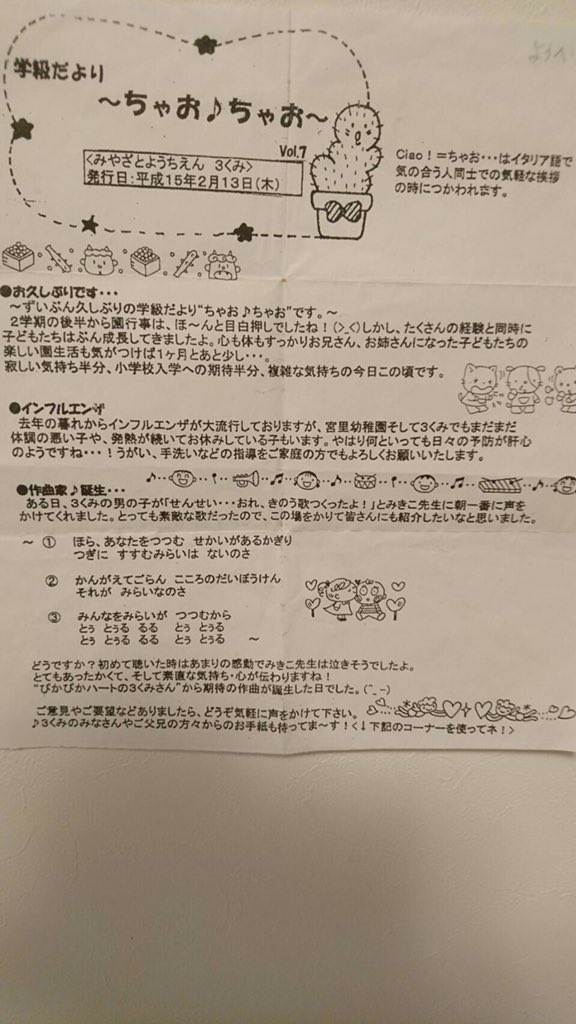 学級だより
～ちゃお♪ちゃお～
Vol.7
<みやざとようちえん 3くみ>
発行日:平成15年2月13日(木)
Ciao!=ちゃお・・・はイタリア語で
気の合う人同士での気軽な挨拶
の時につかわれます。
●お久しぶりです・・・
～ずいぶん久しぶりの学級だより“ちゃお♪ちゃお”です。～
2学期の後半から園行事は、ほ～んと目白押しでしたね！(>_<)しかし、たくさんの経験と同時に
子どもたちはぶん成長してきましたよ。心も体もすっかりお兄さん、お姉さんになった子どもたちの
楽しい園生活も気がつけば1ヶ月とあと少し・・・。
寂しい気持ち半分、小学校入学への期待半分、複雑な気持ちの今日この頃です。
●インフルエンザ
去年の暮れからインフルエンザが大流行しておりますが、宮里幼稚園そして3くみでもまだまだ
体調の悪い子や、発熱が続いてお休みしている子もいます。やはり何といっても日々の予防が肝心
のようですね・・・！うがい、手洗いなどの指導をご家庭の方でもよろしくお願いいたします。
●作曲家♪誕生・・・
ある日、3くみの男の子が「せんせい・・・おれ、きのう歌つくったよ！」とみきこ先生に朝一番に声を
かけてくれました。とっても素敵な歌だったので、この場をかりて皆さんにも紹介したいなと思いました。
～ ① ほら、あなたをつつむ せかいがあるかぎり
つぎに すすむみらいは ないのさ
② かんがえてごらん こころのだいぼうけん
それが みらいなのさ
③ みんなをみらいが つつむから
とぅ とぅる るる とぅ とぅる
とぅ とぅる るる とぅ とぅる ～
どうですか？初めて聴いた時はあまりの感動でみきこ先生は泣きそうでしたよ。
とてもあったかくて、そして素直な気持ち・心が伝わりますね！
“ぴかぴかハートの3くみさん”から期待の作曲が誕生した日でした。(^_-)
ご意見やご要望などありましたら、どうぞ気軽に声をかけて下さい。
♪3くみのみなさんやご父兄の方々からのお手紙も待ってま～す！<↓下記のコーナーを使ってネ！>